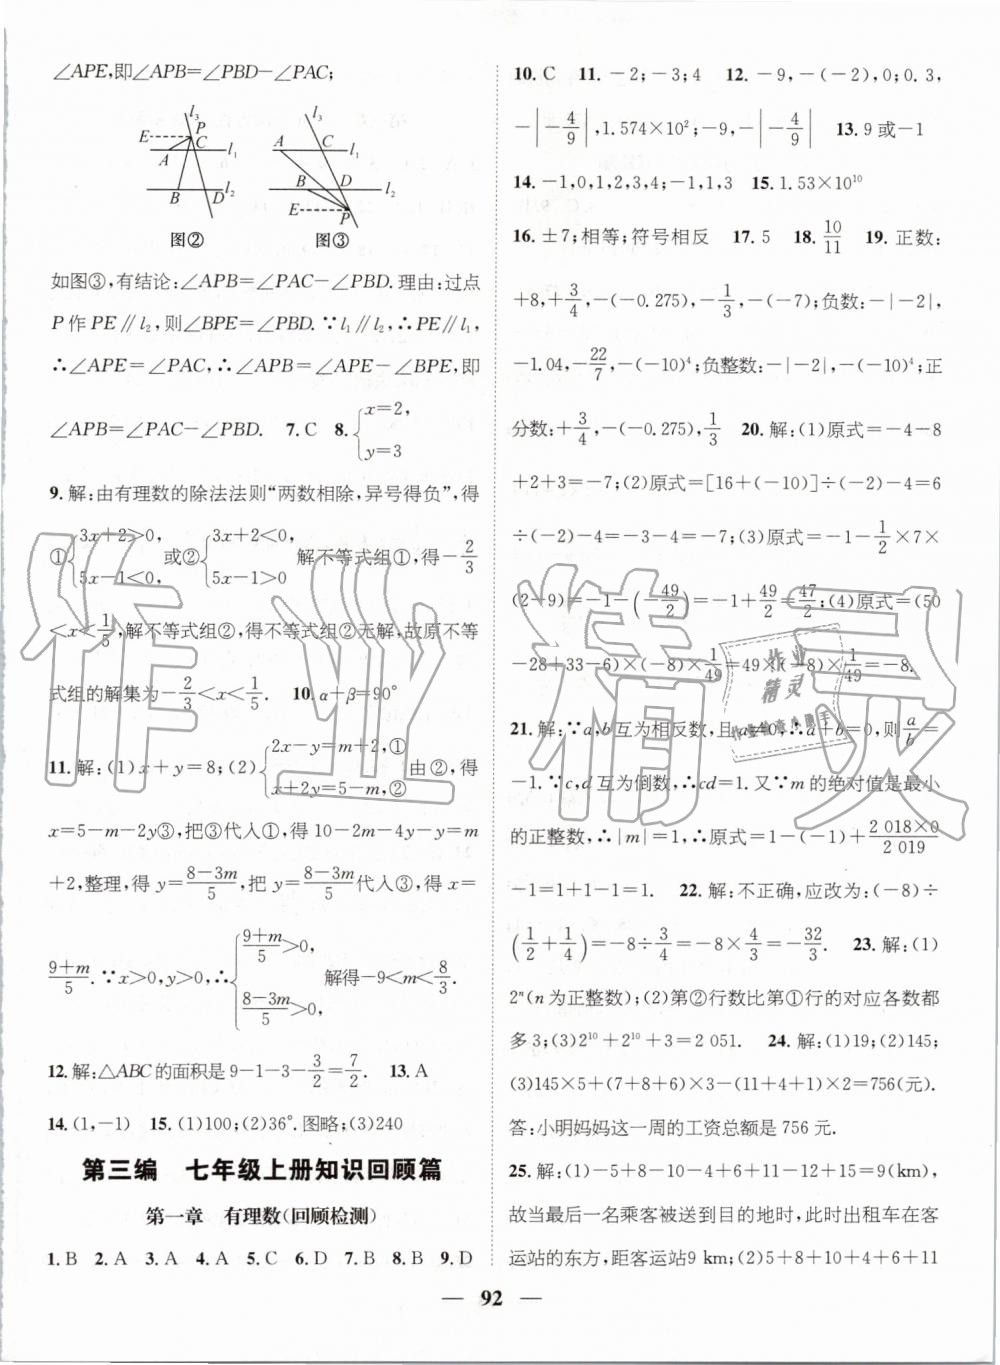 ∠APE,即∠APB=∠PBD-∠PAC;
l₃
E P
C
A l₁
B D l₂
图②
l₃
A C l₁
B D l₂
E P
图③
如图③,有结论:∠APB=∠PAC-∠PBD.理由:过点
P作PE∥l₂,则∠BPE=∠PBD.∵l₁∥l₂,∴PE∥l₁,
∴∠APE=∠PAC,∴∠APB=∠APE-∠BPE,即
∠APB=∠PAC-∠PBD. 7.C 8.{x=2, y=3
9.解:由有理数的除法法则“两数相除,异号得负”,得
①{3x+2>0, 5x-1<0 或②{3x+2<0, 5x-1>0 解不等式组①,得-2/3
<x<1/5,解不等式组②,得不等式组②无解,故原不等
式组的解集为-2/3<x<1/5. 10.α+β=90°
11.解:(1)x+y=8;(2){2x-y=m+2,① x+2y=5-m,② 由②,得
x=5-m-2y③,把③代入①,得10-2m-4y-y=m
+2,整理,得y=(8-3m)/5,把y=(8-3m)/5代入③,得x=
(9+m)/5.∵x>0,y>0,∴{(9+m)/5>0, (8-3m)/5>0, 解得-9<m<8/3.
12.解:△ABC的面积是9-1-3-3/2=7/2. 13.A
14.(1,-1) 15.(1)100;(2)36°.图略;(3)240
第三编 七年级上册知识回顾篇
第一章 有理数(回顾检测)
1.B 2.A 3.A 4.A 5.C 6.D 7.B 8.B 9.D
10.C 11.-2;-3;4 12.-9,-(-2),0;0.3,
-|-4/9|,1.574×10²;-9,-|-4/9| 13.9或-1
14.-1,0,1,2,3,4;-1,1,3 15.1.53×10¹⁰
16.±7;相等;符号相反 17.5 18.10/11 19.正数:
+8,+3/4,-(-0.275),-1/3,-(-7);负数:-|-2|,
-1.04,-22/7,-(-10)⁴;负整数:-|-2|,-(-10)⁴;正
分数:+3/4,-(-0.275),1/3 20.解:(1)原式=-4-8
+2+3=-7;(2)原式=[16+(-10)]÷(-2)-4=6
÷(-2)-4=-3-4=-7;(3)原式=-1-1/2×7×
(2-9)=-1-(-49/2)=-1+49/2=47/2;(4)原式=(50
-28+33-6)×(-8)×1/49=49×(-8)×1/49=-8.
21.解:∵a,b互为相反数,且a≠0,∴a+b=0,则a/b=
-1.∵c,d互为倒数,∴cd=1.又∵m的绝对值是最小
的正整数,∴|m|=1,∴原式=1-(-1)+(2 018×0)/2 019
-1=1+1-1=1. 22.解:不正确,应改为:(-8)÷
(1/2+1/4)=-8÷3/4=-8×4/3=-32/3. 23.解:(1)
2ⁿ(n为正整数);(2)第②行数比第①行的对应各数都
多3;(3)2¹⁰+2¹⁰+3=2 051. 24.解:(1)19;(2)145;
(3)145×5+(7+8+6)×3-(11+4+1)×2=756(元).
答:小明妈妈这一周的工资总额是756元.
25.解:(1)-5+8-10-4+6-11+10+15=9(km),
故当最后一名乘客被送到目的地时,此时出租车在客
运站的东方,距客运站9 km;(2)5+8+10+4+6+11
— 92 —
作业精灵
作业
精灵